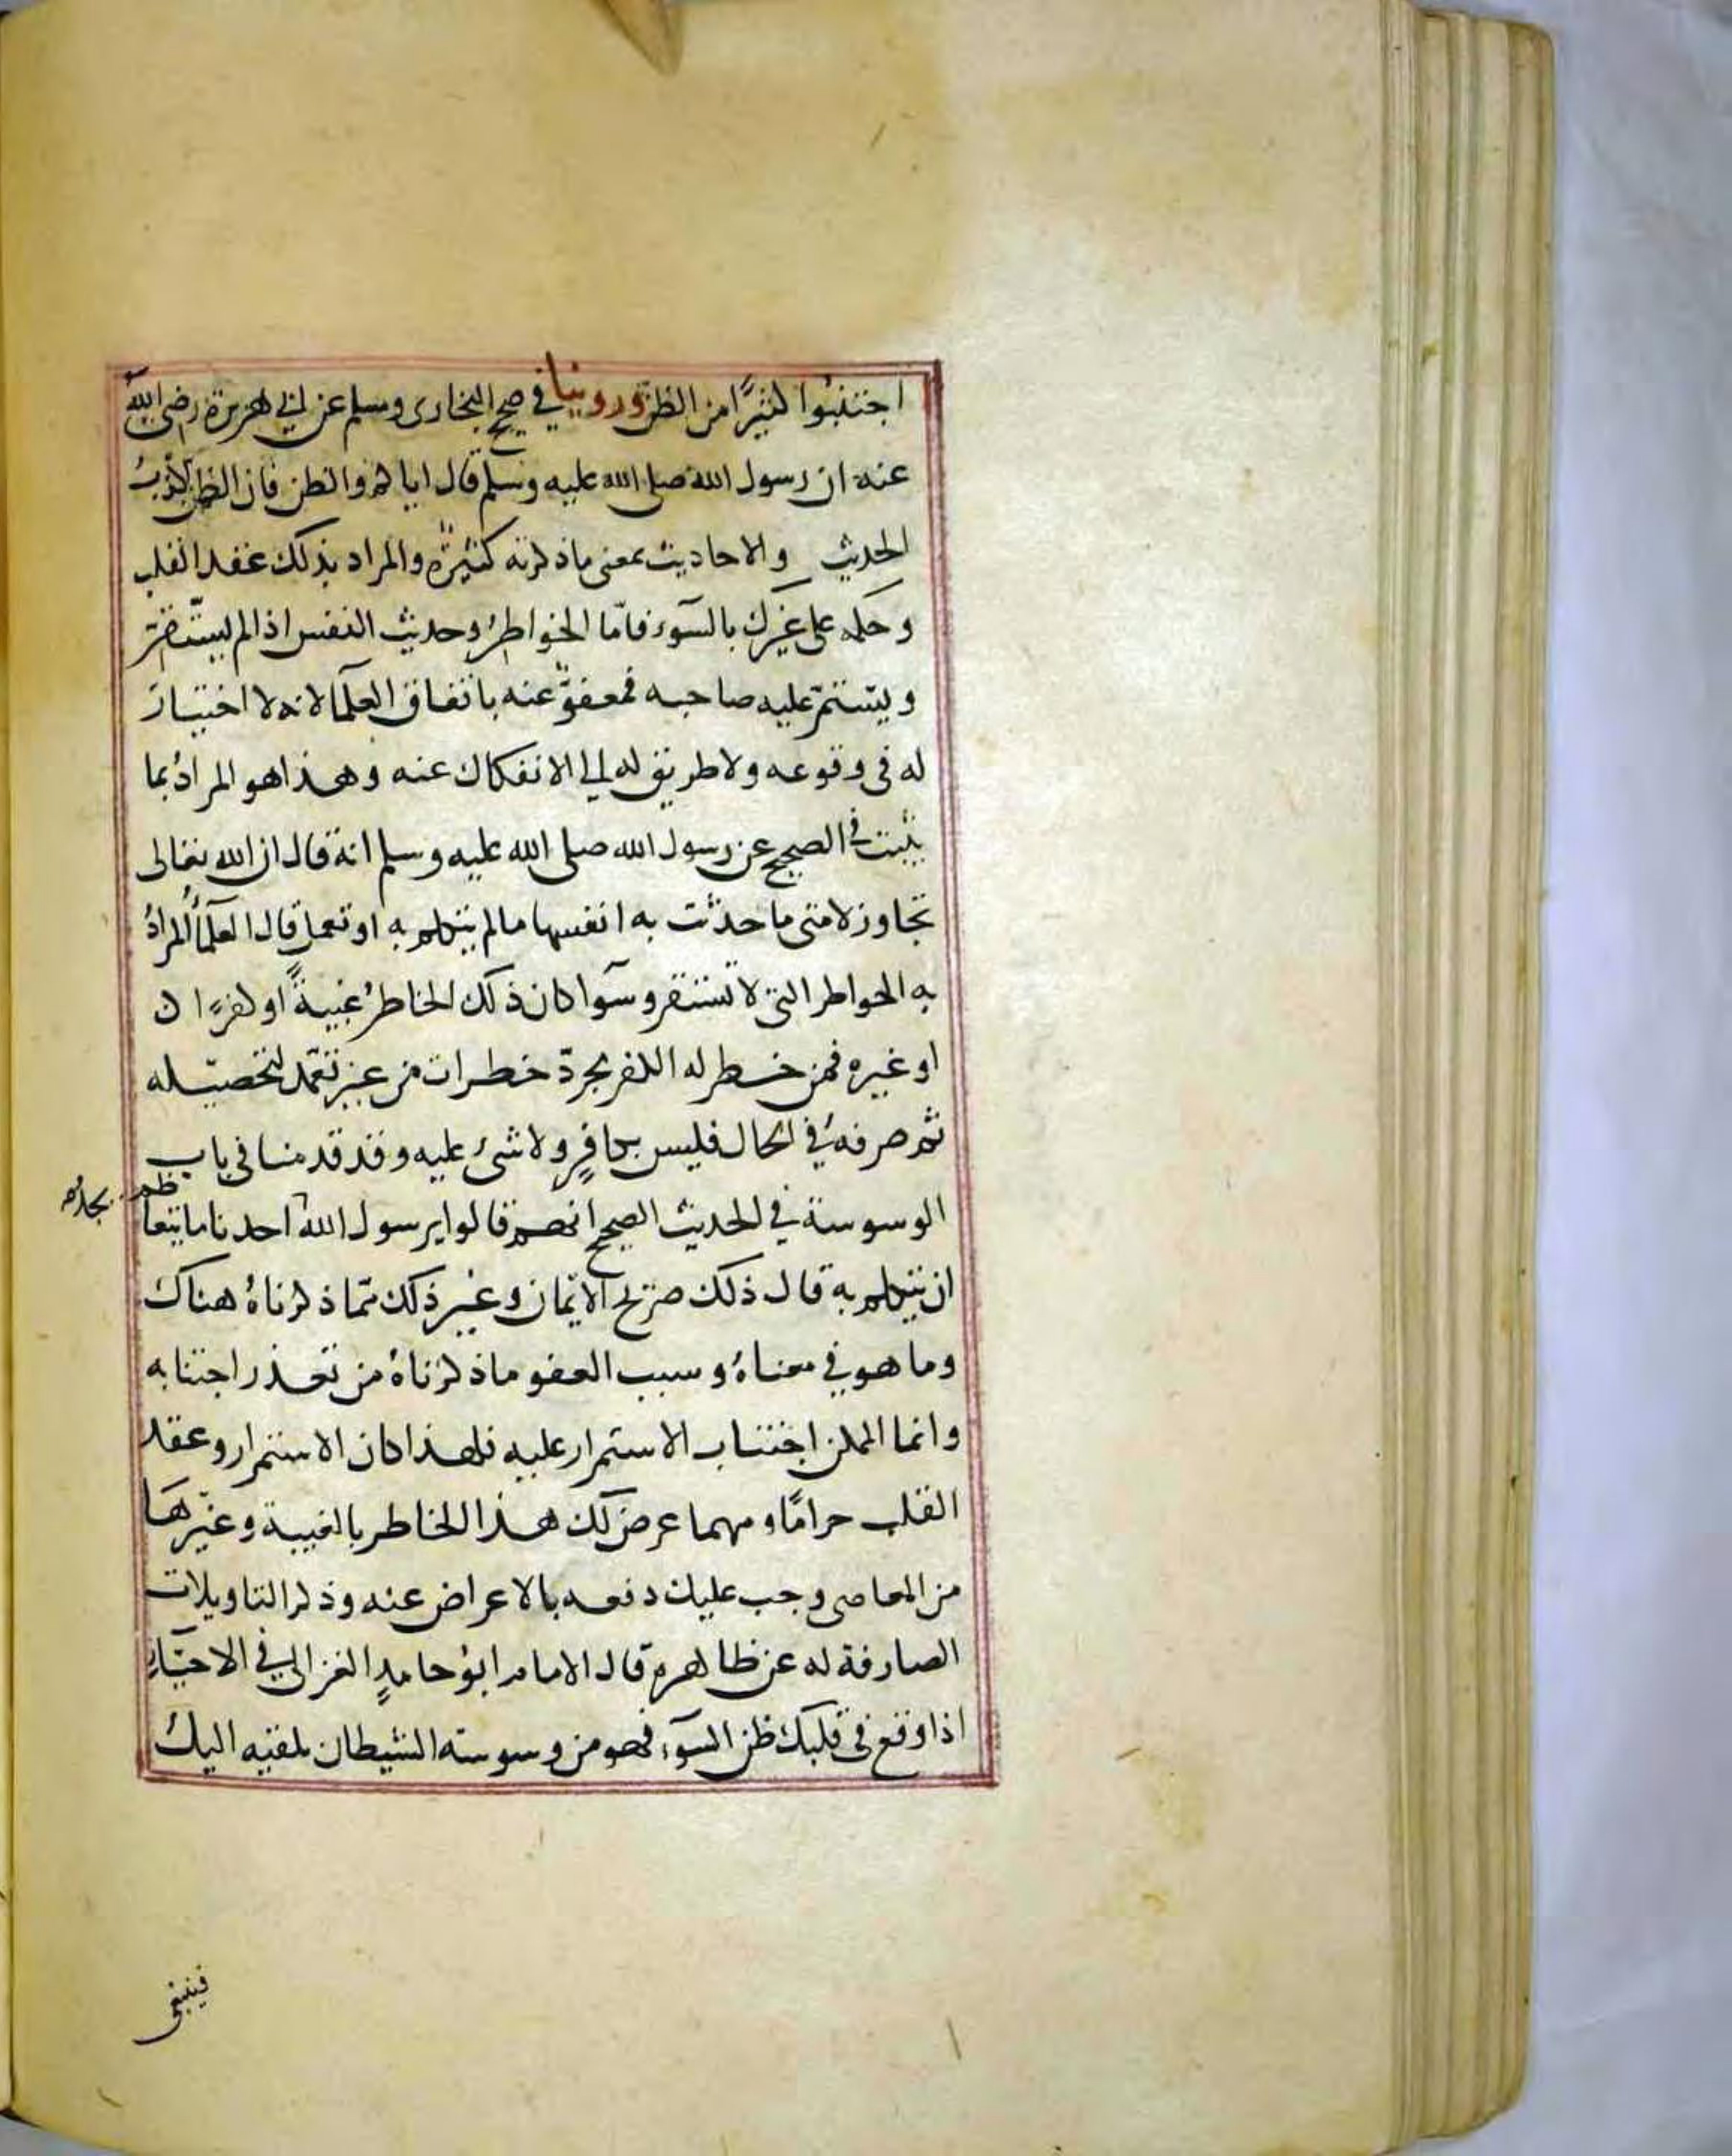 اجتنبُوا كثيرًا من الظن وروينا في صحيح البخارى ومسلم عن ابي هريرة رضى الله
عنه ان رسول الله صلى الله عليه وسلم قال اياكم والظن فان الظن اكذبُ
الحديث والاحاديث بمعنى ما ذكرته كثيرة والمراد بذلك عقد القلب
وحكمه على غيرك بالسوء فامّا الخواطرُ وحديث النفس اذا لم يستقر
ويستمرّ عليه صاحبه فمعفوّ عنه باتفاق العلما لانه لا اختيار
له فى وقوعه ولا طريق له الي الانفكاك عنه وهذا هو المرادُ بما
ثبت في الصحيح عن رسول الله صلى الله عليه وسلم انه قال ان الله تعالى
تجاوز لامتى ما حدثت به انفسها ما لم يتكلم به او تعمل قال العلمآ المرادُ
به الخواطر التى لا تستقر وسوآ كان ذلك الخاطرُ غيبةً او كفرًا
او غيره فمن خطر له الكفر مجردّ خطرات من غير تعمّد لتحصيله
ثم صرفهُ في الحال فليس بكافرٍ ولا شئ عليه وقد قدمنا فى باب
الوسوسة في الحديث الصحيح انهم قالوا يرسول الله احدنا ما يتعاظم
ان يتكلم به قال ذلك صريح الايمان وغير ذلك ممّا ذكرناهُ هناك
وما هو في معناهُ وسبب العفو ما ذكرناهُ من تعذر اجتنابه
وانما الممكن اجتناب الاستمرار عليه فلهذا كان الاستمرار وعقد
القلب حرامًا ومهما عرض لك هذا الخاطر بالغيبة وغيرها
من المعاصى وجب عليك دفعه بالاعراض عنه وذكر التاويلات
الصارفة له عن ظاهره قال الامام ابوُ حامدٍ الغزالي في الاحيآءِ
اذا وقع فى قلبك ظن السوء فهو من وسوسته الشيطان يلقيه اليك
فينبغى